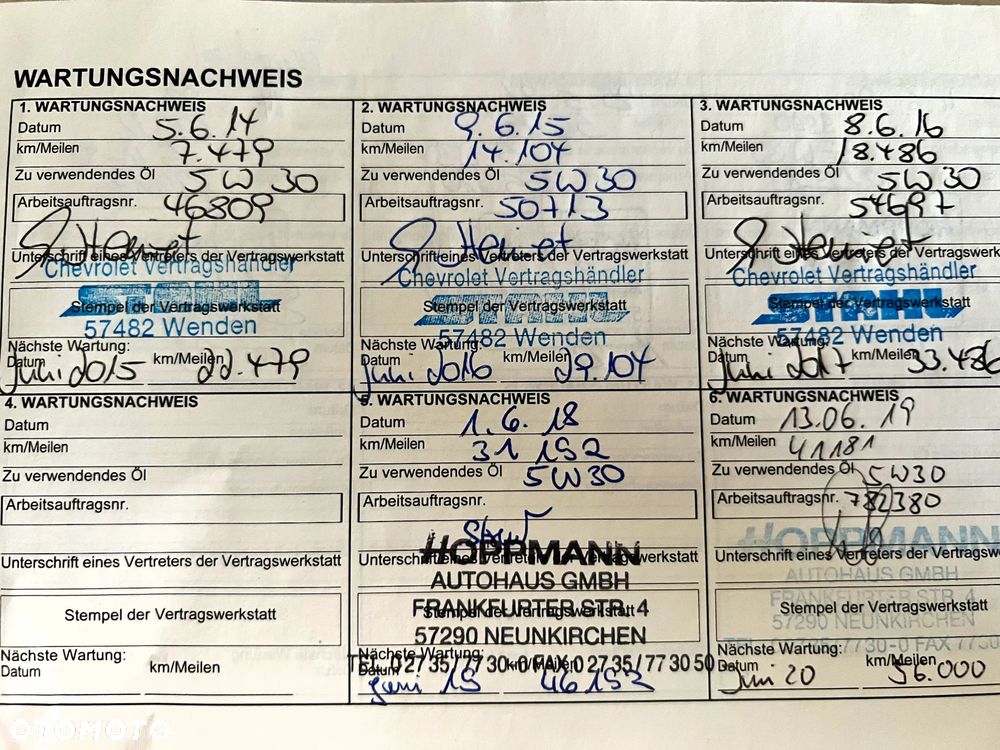 WARTUNGSNACHWEIS
1. WARTUNGSNACHWEIS
Datum 5.6.14
km/Meilen 7.479
Zu verwendendes Öl 5W30
Arbeitsauftragsnr. 46809
Unterschrift eines Vertreters der Vertragswerkstatt
Chevrolet Vertragshändler
STAHL
Stempel der Vertragswerkstatt
57482 Wenden
Nächste Wartung:
Datum Juni 2015 km/Meilen 22.479
2. WARTUNGSNACHWEIS
Datum 9.6.15
km/Meilen 14.104
Zu verwendendes Öl 5W30
Arbeitsauftragsnr. 50713
Unterschrift eines Vertreters der Vertragswerkstatt
Chevrolet Vertragshändler
Stempel der Vertragswerkstatt
57482 Wenden
Nächste Wartung:
Datum Juni 2016 km/Meilen 29.104
3. WARTUNGSNACHWEIS
Datum 8.6.16
km/Meilen 18.486
Zu verwendendes Öl 5W30
Arbeitsauftragsnr. 54697
Unterschrift eines Vertreters der Vertragswerkstatt
Chevrolet Vertragshändler
STAHL
Stempel der Vertragswerkstatt
57482 Wenden
Nächste Wartung:
Datum Juni 2017 km/Meilen 33.486
4. WARTUNGSNACHWEIS
Datum
km/Meilen
Zu verwendendes Öl
Arbeitsauftragsnr.
Unterschrift eines Vertreters der Vertragswerkstatt
Stempel der Vertragswerkstatt
Nächste Wartung:
Datum km/Meilen
5. WARTUNGSNACHWEIS
Datum 1.6.18
km/Meilen 31 152
Zu verwendendes Öl 5W30
Arbeitsauftragsnr.
HOPPMANN
Unterschrift eines Vertreters der Vertragswerkstatt
AUTOHAUS GMBH
FRANKFURTER STR. 4
Stempel der Vertragswerkstatt
57290 NEUNKIRCHEN
Nächste Wartung:
TEL. 0 27 35 / 77 30-0 FAX 0 27 35 / 77 30 50
Datum Juni 19 km/Meilen 46 152
6. WARTUNGSNACHWEIS
Datum 13.06.19
km/Meilen 41181
Zu verwendendes Öl 5W30
Arbeitsauftragsnr. 782380
HOPPMANN
Unterschrift eines Vertreters der Vertragswe
AUTOHAUS GMBH
FRANKFURTER STR. 4
Stempel der Vertragswerkstatt
57290 NEUNKIRCHEN
Nächste Wartung:
Datum Juni 20 km/Meilen 56.000
OTOMOTO